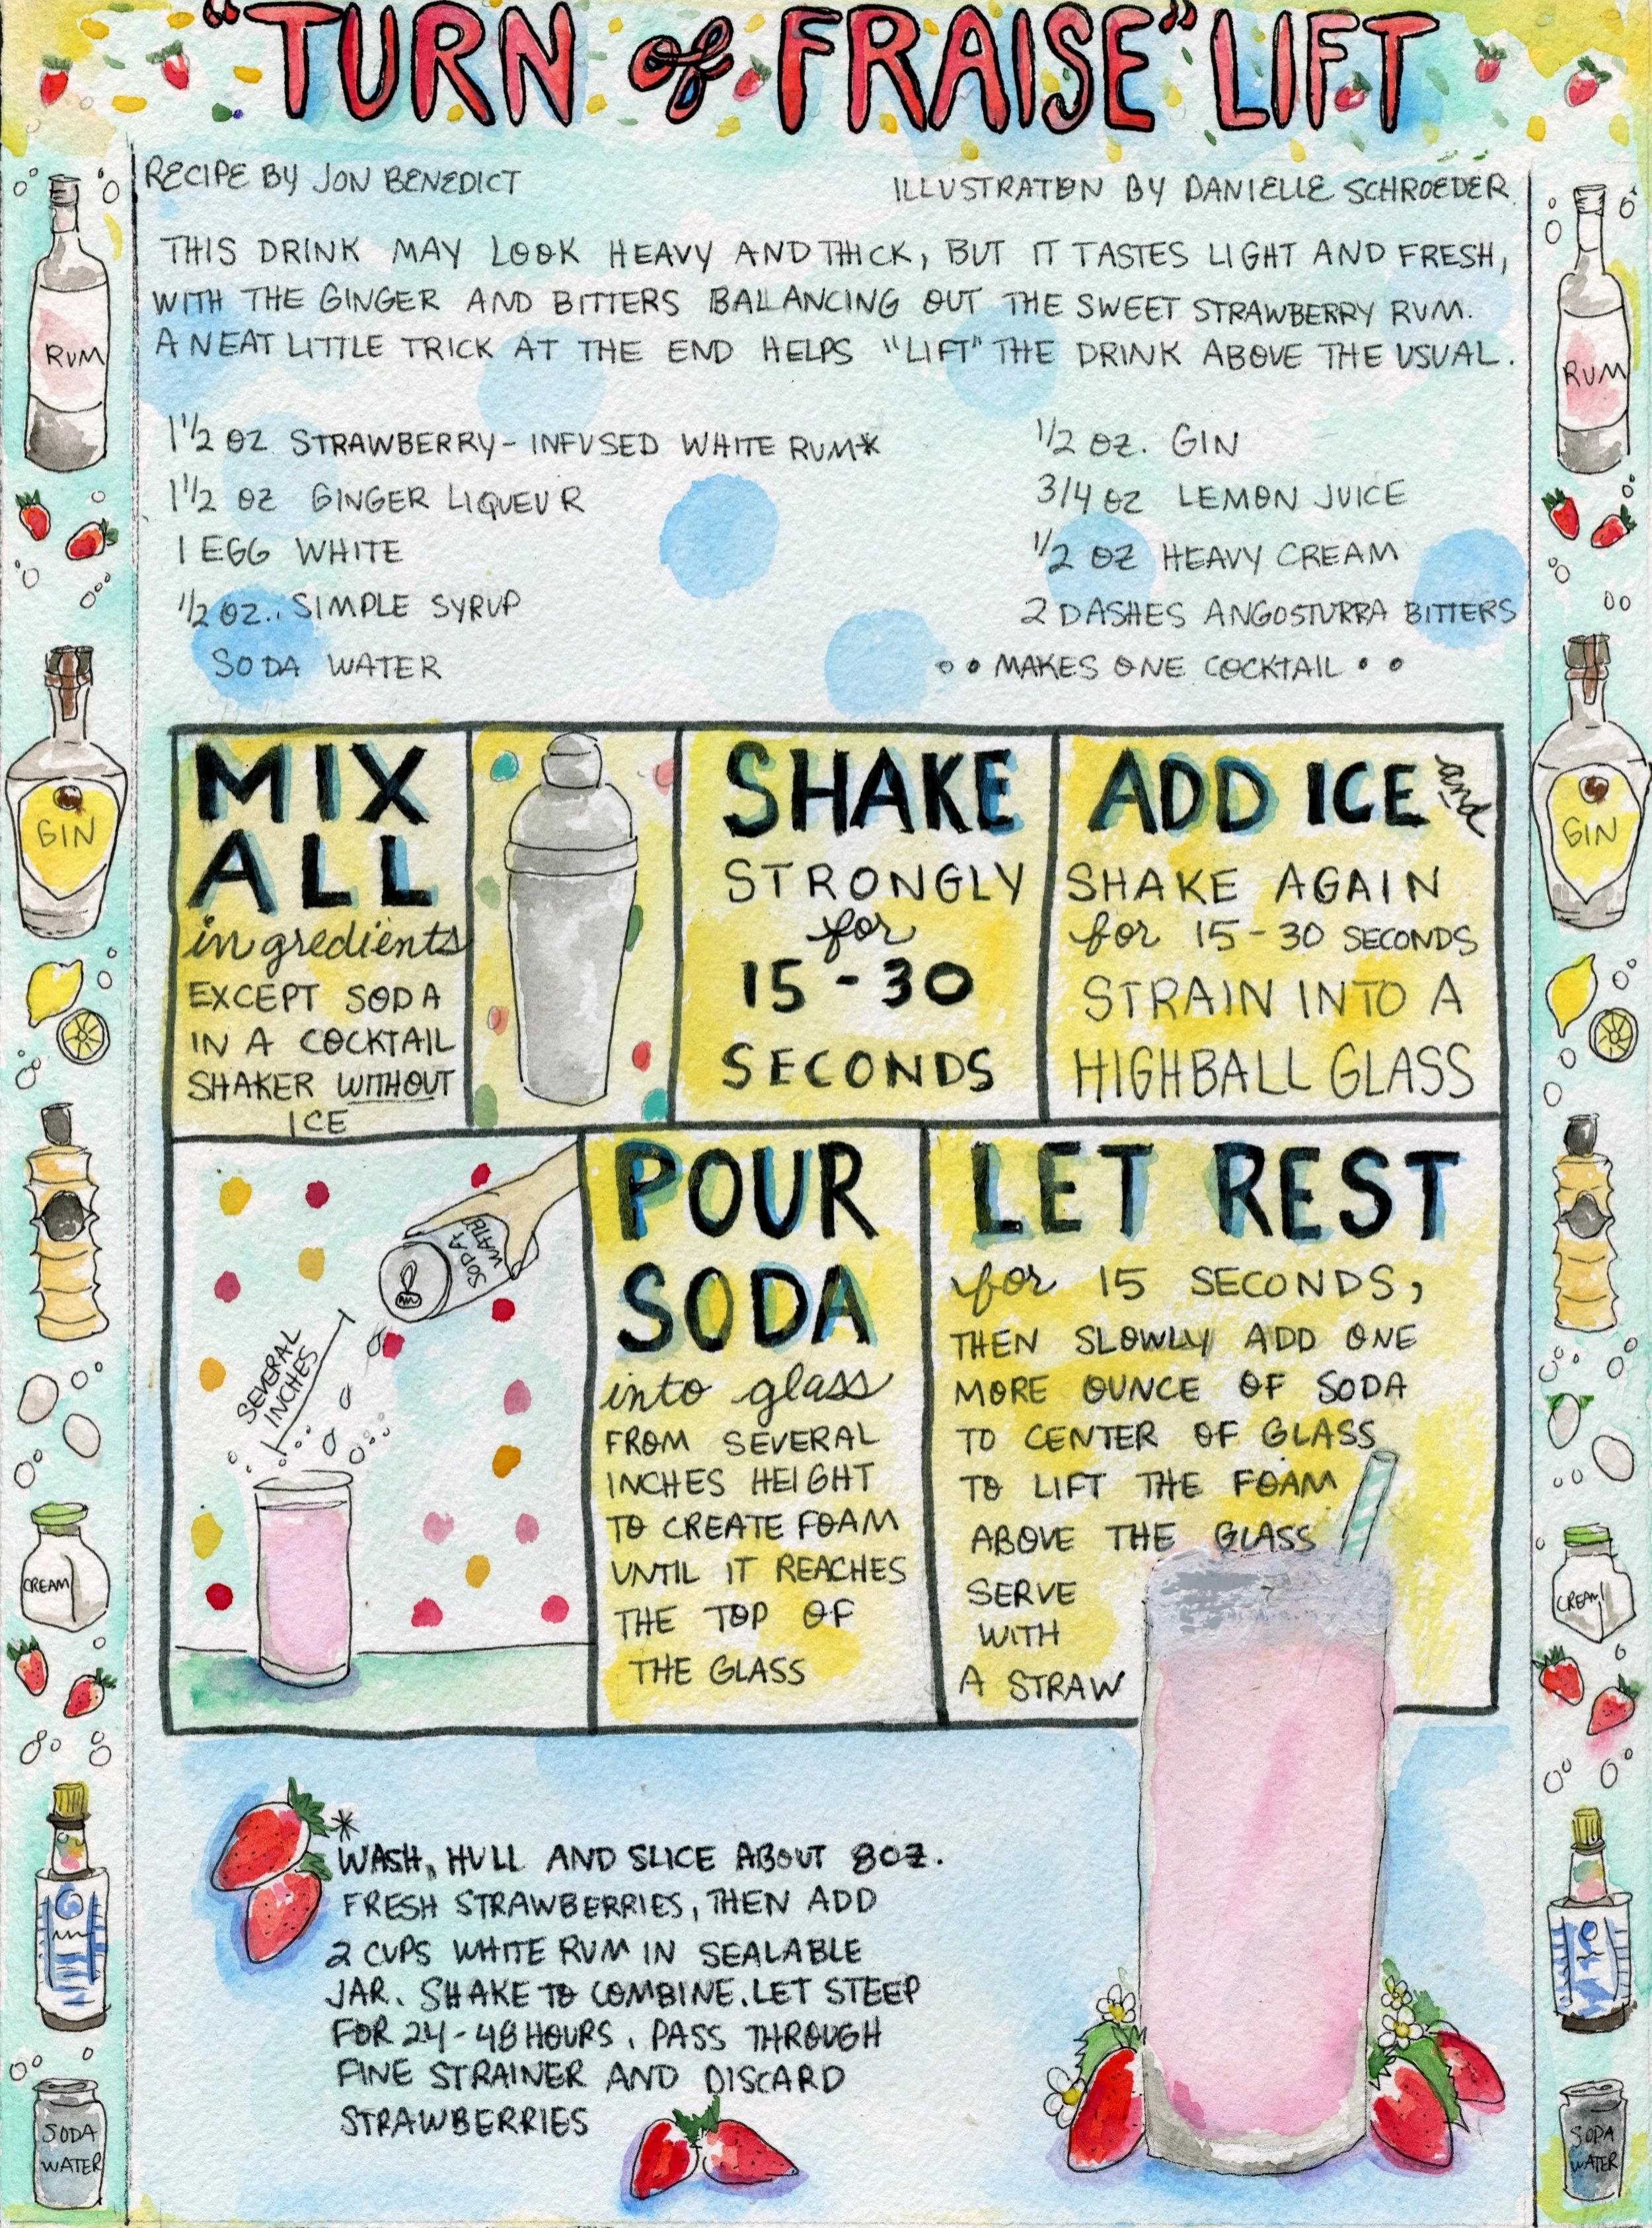 "TURN of FRAISE" LIFT
RECIPE BY JON BENEDICT
ILLUSTRATION BY DANIELLE SCHROEDER
THIS DRINK MAY LOOK HEAVY AND THICK, BUT IT TASTES LIGHT AND FRESH,
WITH THE GINGER AND BITTERS BALANCING OUT THE SWEET STRAWBERRY RUM.
A NEAT LITTLE TRICK AT THE END HELPS "LIFT" THE DRINK ABOVE THE USUAL.
1 1/2 OZ STRAWBERRY-INFUSED WHITE RUM*
1 1/2 OZ GINGER LIQUEUR
1 EGG WHITE
1/2 OZ.. SIMPLE SYRUP
SODA WATER
1/2 OZ. GIN
3/4 OZ LEMON JUICE
1/2 OZ HEAVY CREAM
2 DASHES ANGOSTURRA BITTERS
•• MAKES ONE COCKTAIL ••
MIX
ALL
ingredients
EXCEPT SODA
IN A COCKTAIL
SHAKER WITHOUT
ICE
SHAKE
STRONGLY
for
15-30
SECONDS
ADD ICE and
SHAKE AGAIN
for 15-30 SECONDS
STRAIN INTO A
HIGHBALL GLASS
SODA
WATER
SEVERAL
INCHES
POUR
SODA
into glass
FROM SEVERAL
INCHES HEIGHT
TO CREATE FOAM
UNTIL IT REACHES
THE TOP OF
THE GLASS
LET REST
for 15 SECONDS,
THEN SLOWLY ADD ONE
MORE OUNCE OF SODA
TO CENTER OF GLASS
TO LIFT THE FOAM
ABOVE THE GLASS
SERVE
WITH
A STRAW
*
WASH, HULL AND SLICE ABOUT 8OZ.
FRESH STRAWBERRIES, THEN ADD
2 CUPS WHITE RUM IN SEALABLE
JAR. SHAKE TO COMBINE. LET STEEP
FOR 24-48 HOURS. PASS THROUGH
FINE STRAINER AND DISCARD
STRAWBERRIES
RUM
GIN
CREAM
SODA
WATER
RUM
GIN
CREAM
SODA
WATER